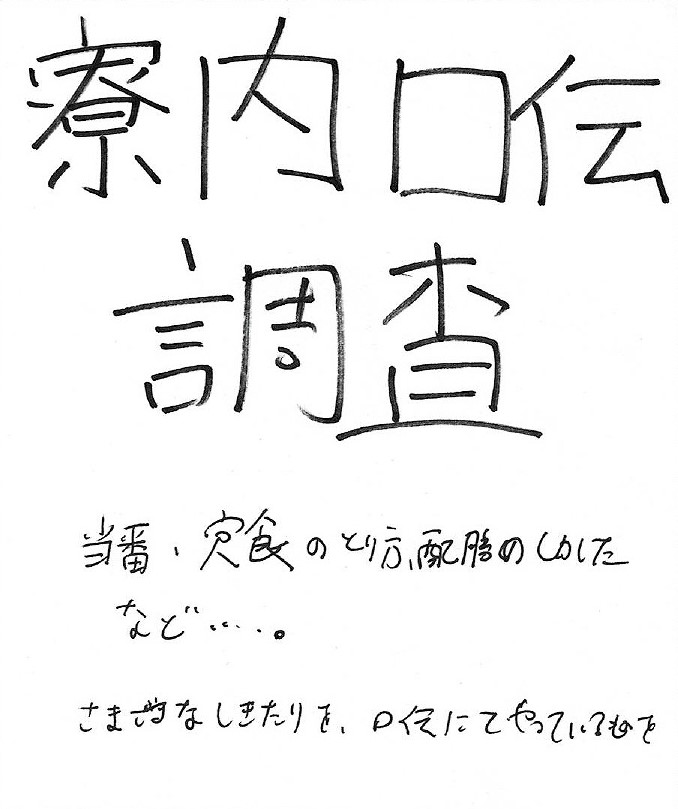 寮内口伝
調査
当番、欠食のとり方、配膳のしかた
など‥‥。
さまざまなしきたりを、口伝にてやっているものを